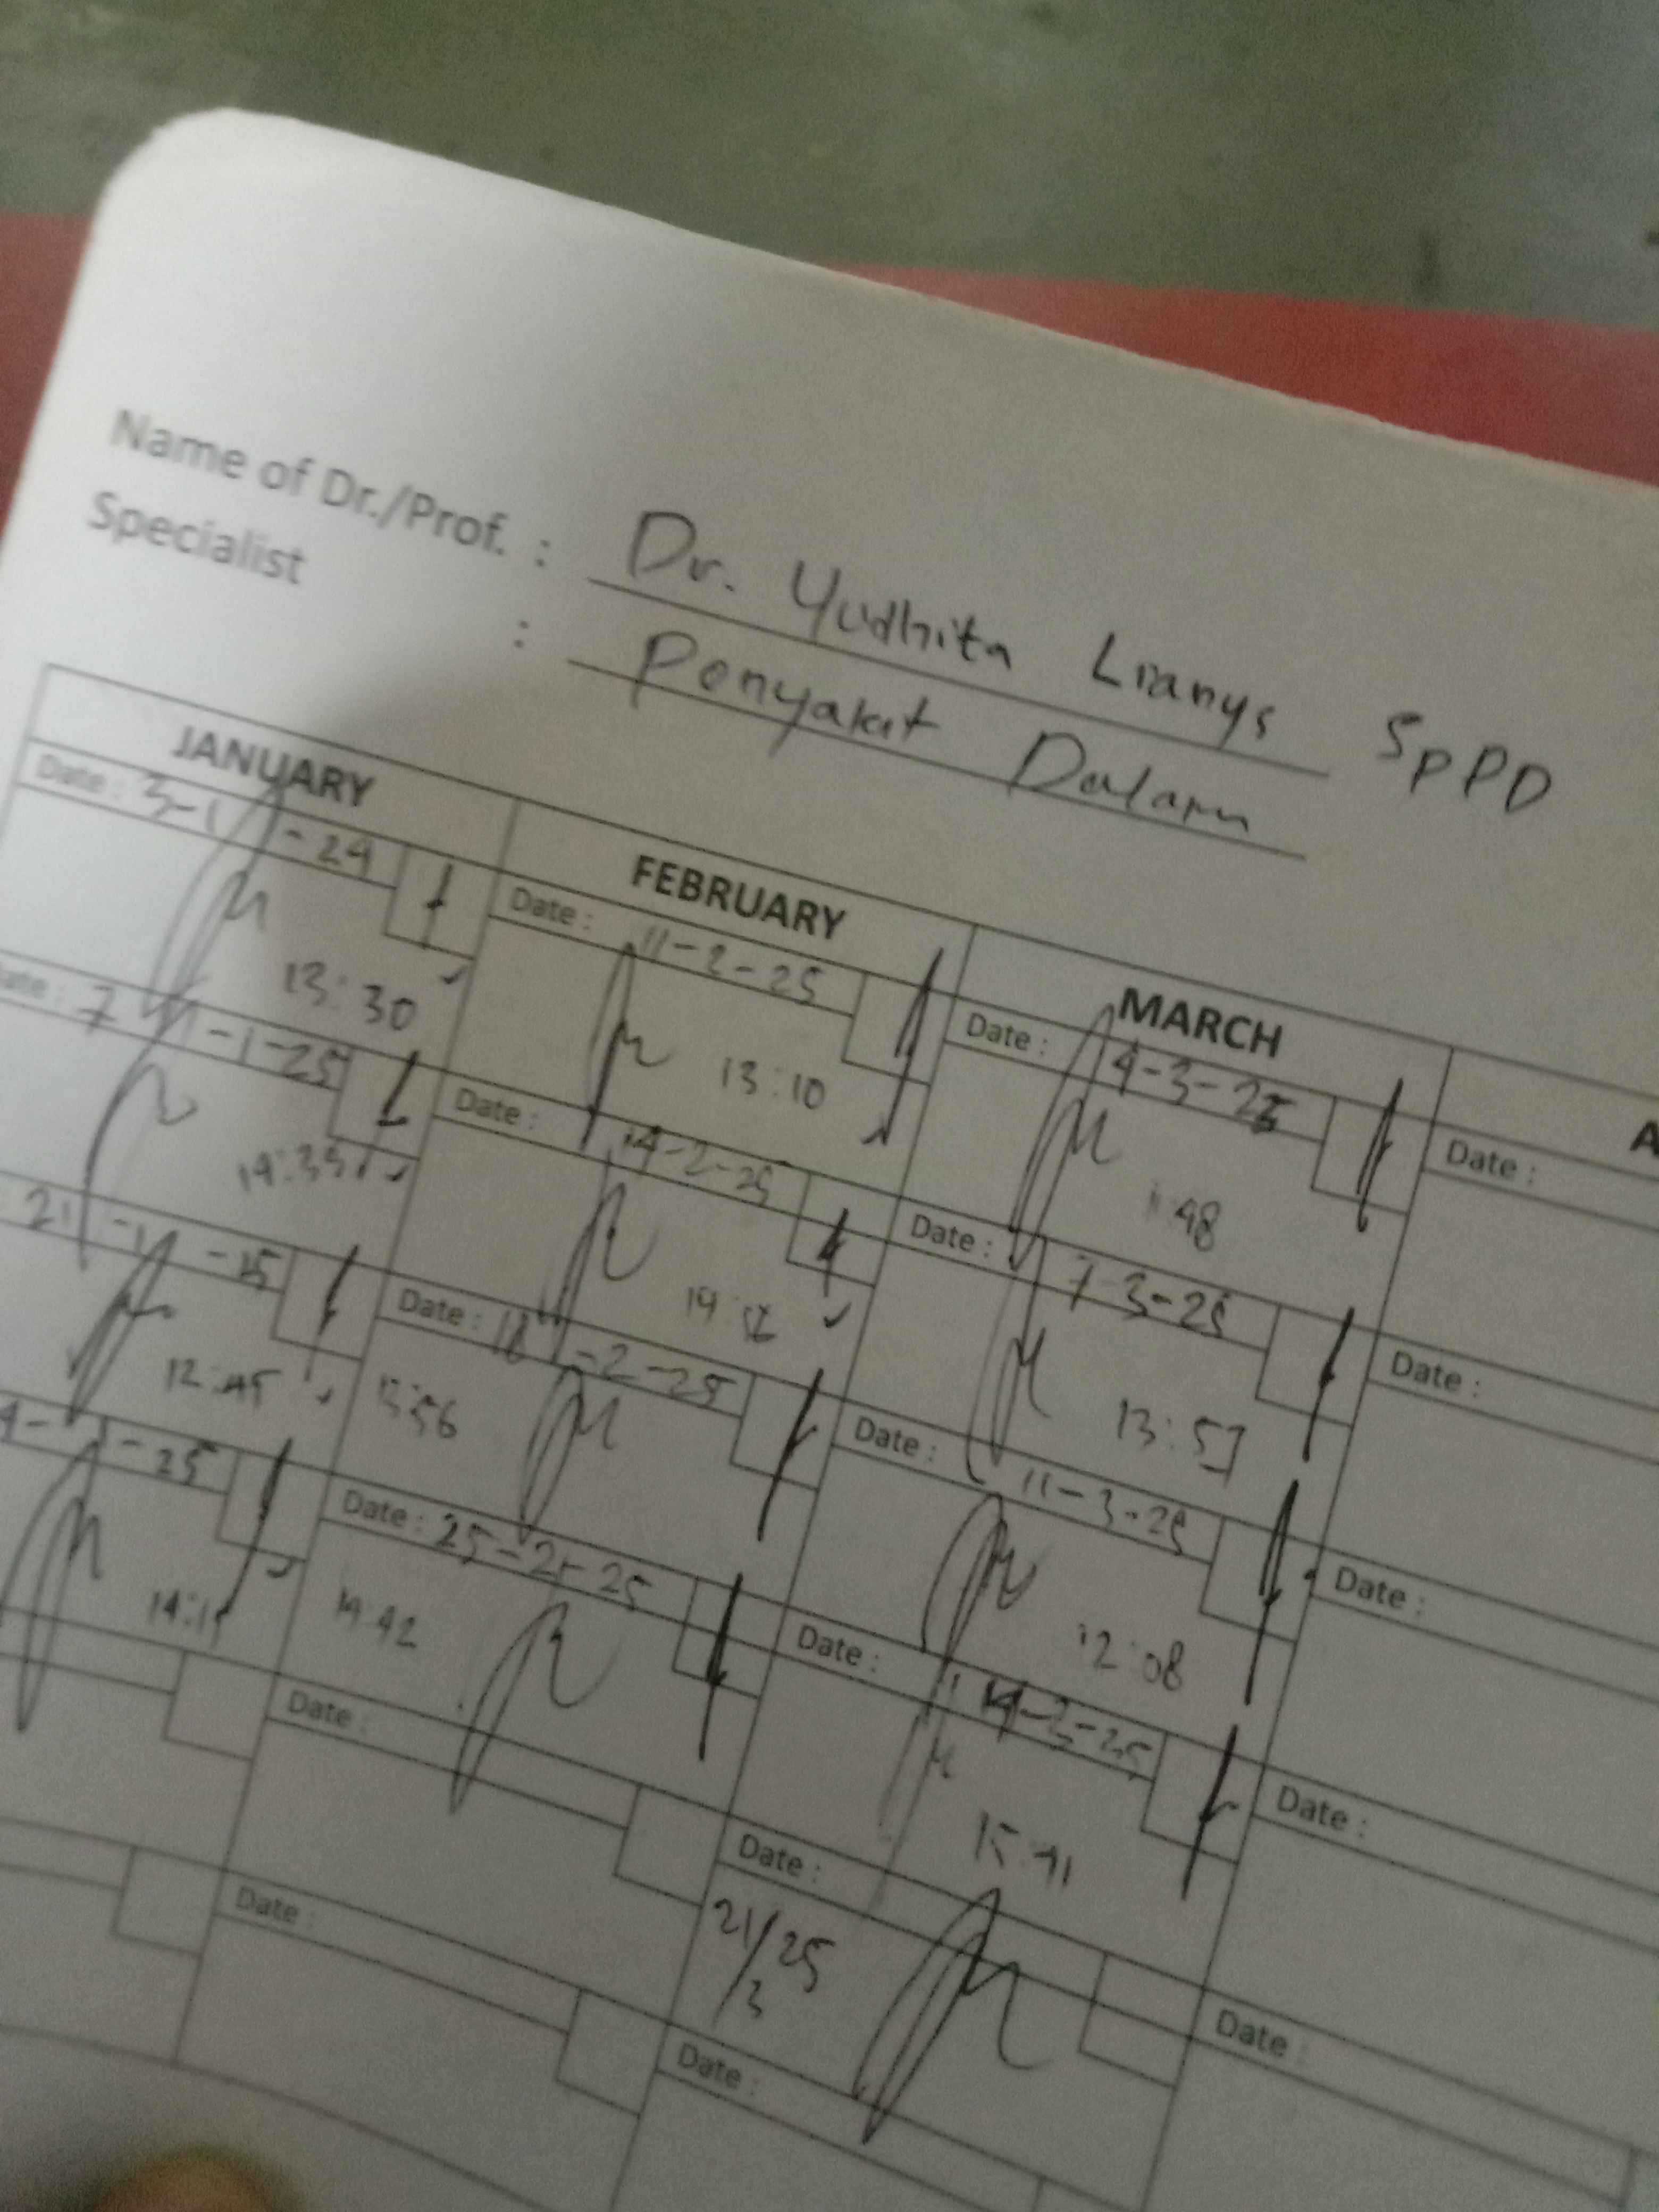 Name of Dr./Prof. : Dr. Yudhita Lianys SpPD
Specialist : Penyakit Dalam
JANUARY
Date : 3-1-24
13:30
7-1-25
14:35
21-1-25
12:45
-25
14:1
FEBRUARY
Date : 11-2-25
13:10
Date : 14-2-25
14:12
Date : 18-2-25
13:56
Date : 25-2-25
14:42
Date :
Date :
MARCH
Date : 4-3-25
:48
Date : 7-3-25
13:57
Date : 11-3-25
12:08
Date : 14-3-25
15:41
Date :
21/3 25
Date :
A
Date :
Date :
Date :
Date :
Date :